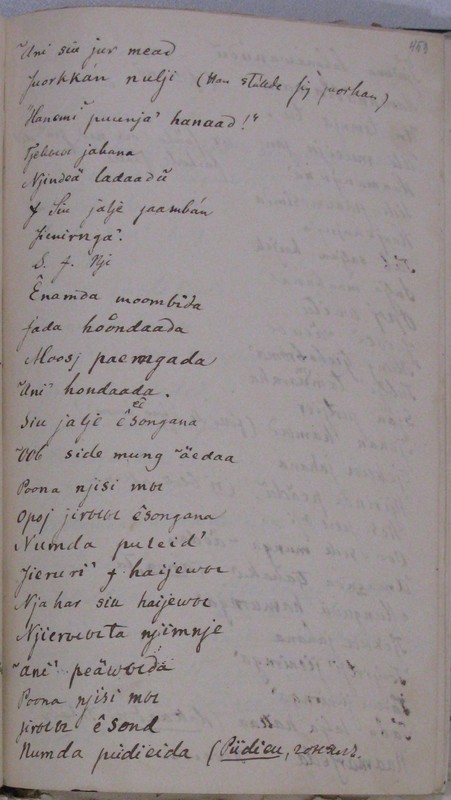 468
"Ani siu jur mead
Juorkkán nulji (Han stälde sig juorkan)
Hanemi puunja' hanaad!"
jahana
Njindeä ladaadü
Siu jaljé jaambán
Jieuirnga'.
S. f. Nji
Ênamda moombida
Jada hoondaada
Moosj paerngada
"Ani' hondaada.
Siu jaljé êsongana
side mung "äedaa
Poona njisi mы
Opoj jirwы êsongana
Numda puleid'
Jieruri' f haijewы
Nja har siu haijewы
Njierwыta njimnje
"ani' peäwыda
Poona njisi mы
jirwы êsond
Numda püdieida (Püdieu,